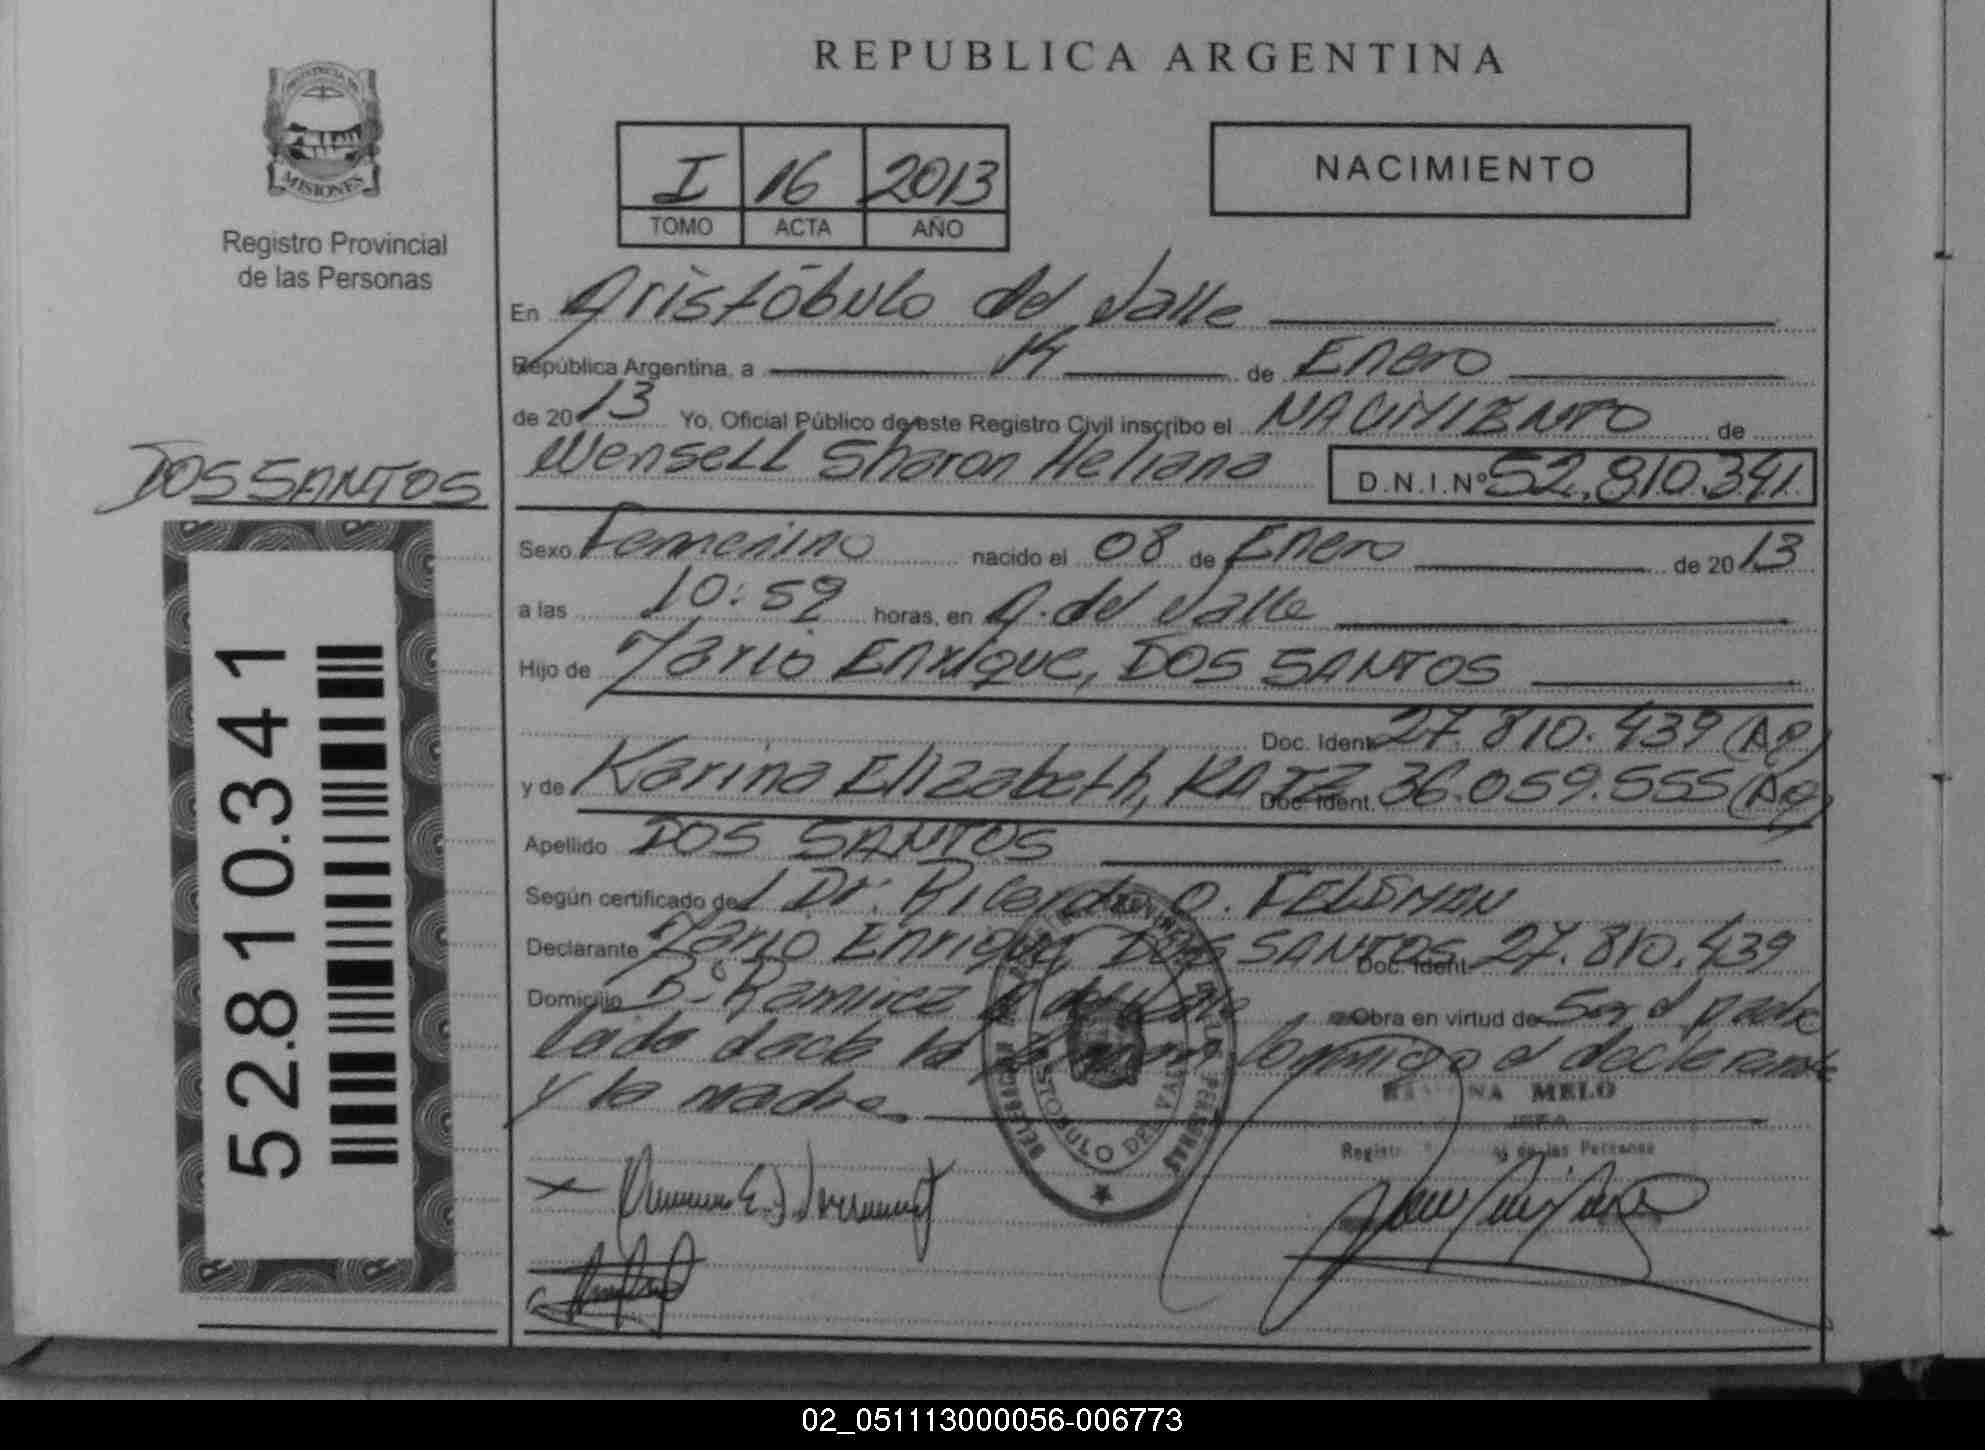 REPUBLICA ARGENTINA
PROVINCIA DE
MISIONES
Registro Provincial
de las Personas
I 16 2013
TOMO ACTA AÑO
NACIMIENTO
En Aristóbulo del Valle
República Argentina, a 14 de Enero
de 2013 Yo, Oficial Público de este Registro Civil inscribo el NACIMIENTO de
DOS SANTOS
Wensell Sharon Heliana D.N.I.Nº 52.810.341
Sexo Femenino nacido el 08 de Enero de 2013
a las 10:59 horas, en A. del Valle
Hijo de Mario Enrique, DOS SANTOS
Doc. Ident. 27.810.439 (Ag)
y de Karina Elizabeth, KATZ Doc. Ident. 36.059.555 (Ag)
Apellido DOS SANTOS
Según certificado del Dr. Ricardo O. FELDMAN
Declarante Mario Enrique DOS SANTOS Doc. Ident. 27.810.439
Domicilio Bº Ramirez A del Valle Obra en virtud de Ser el padre
Leída el acta la firman conmigo el declarante
y la madre.
52.810.341
ARISTOBULO DEL VALLE
MELO
Registr de las Personas
02_051113000056-006773